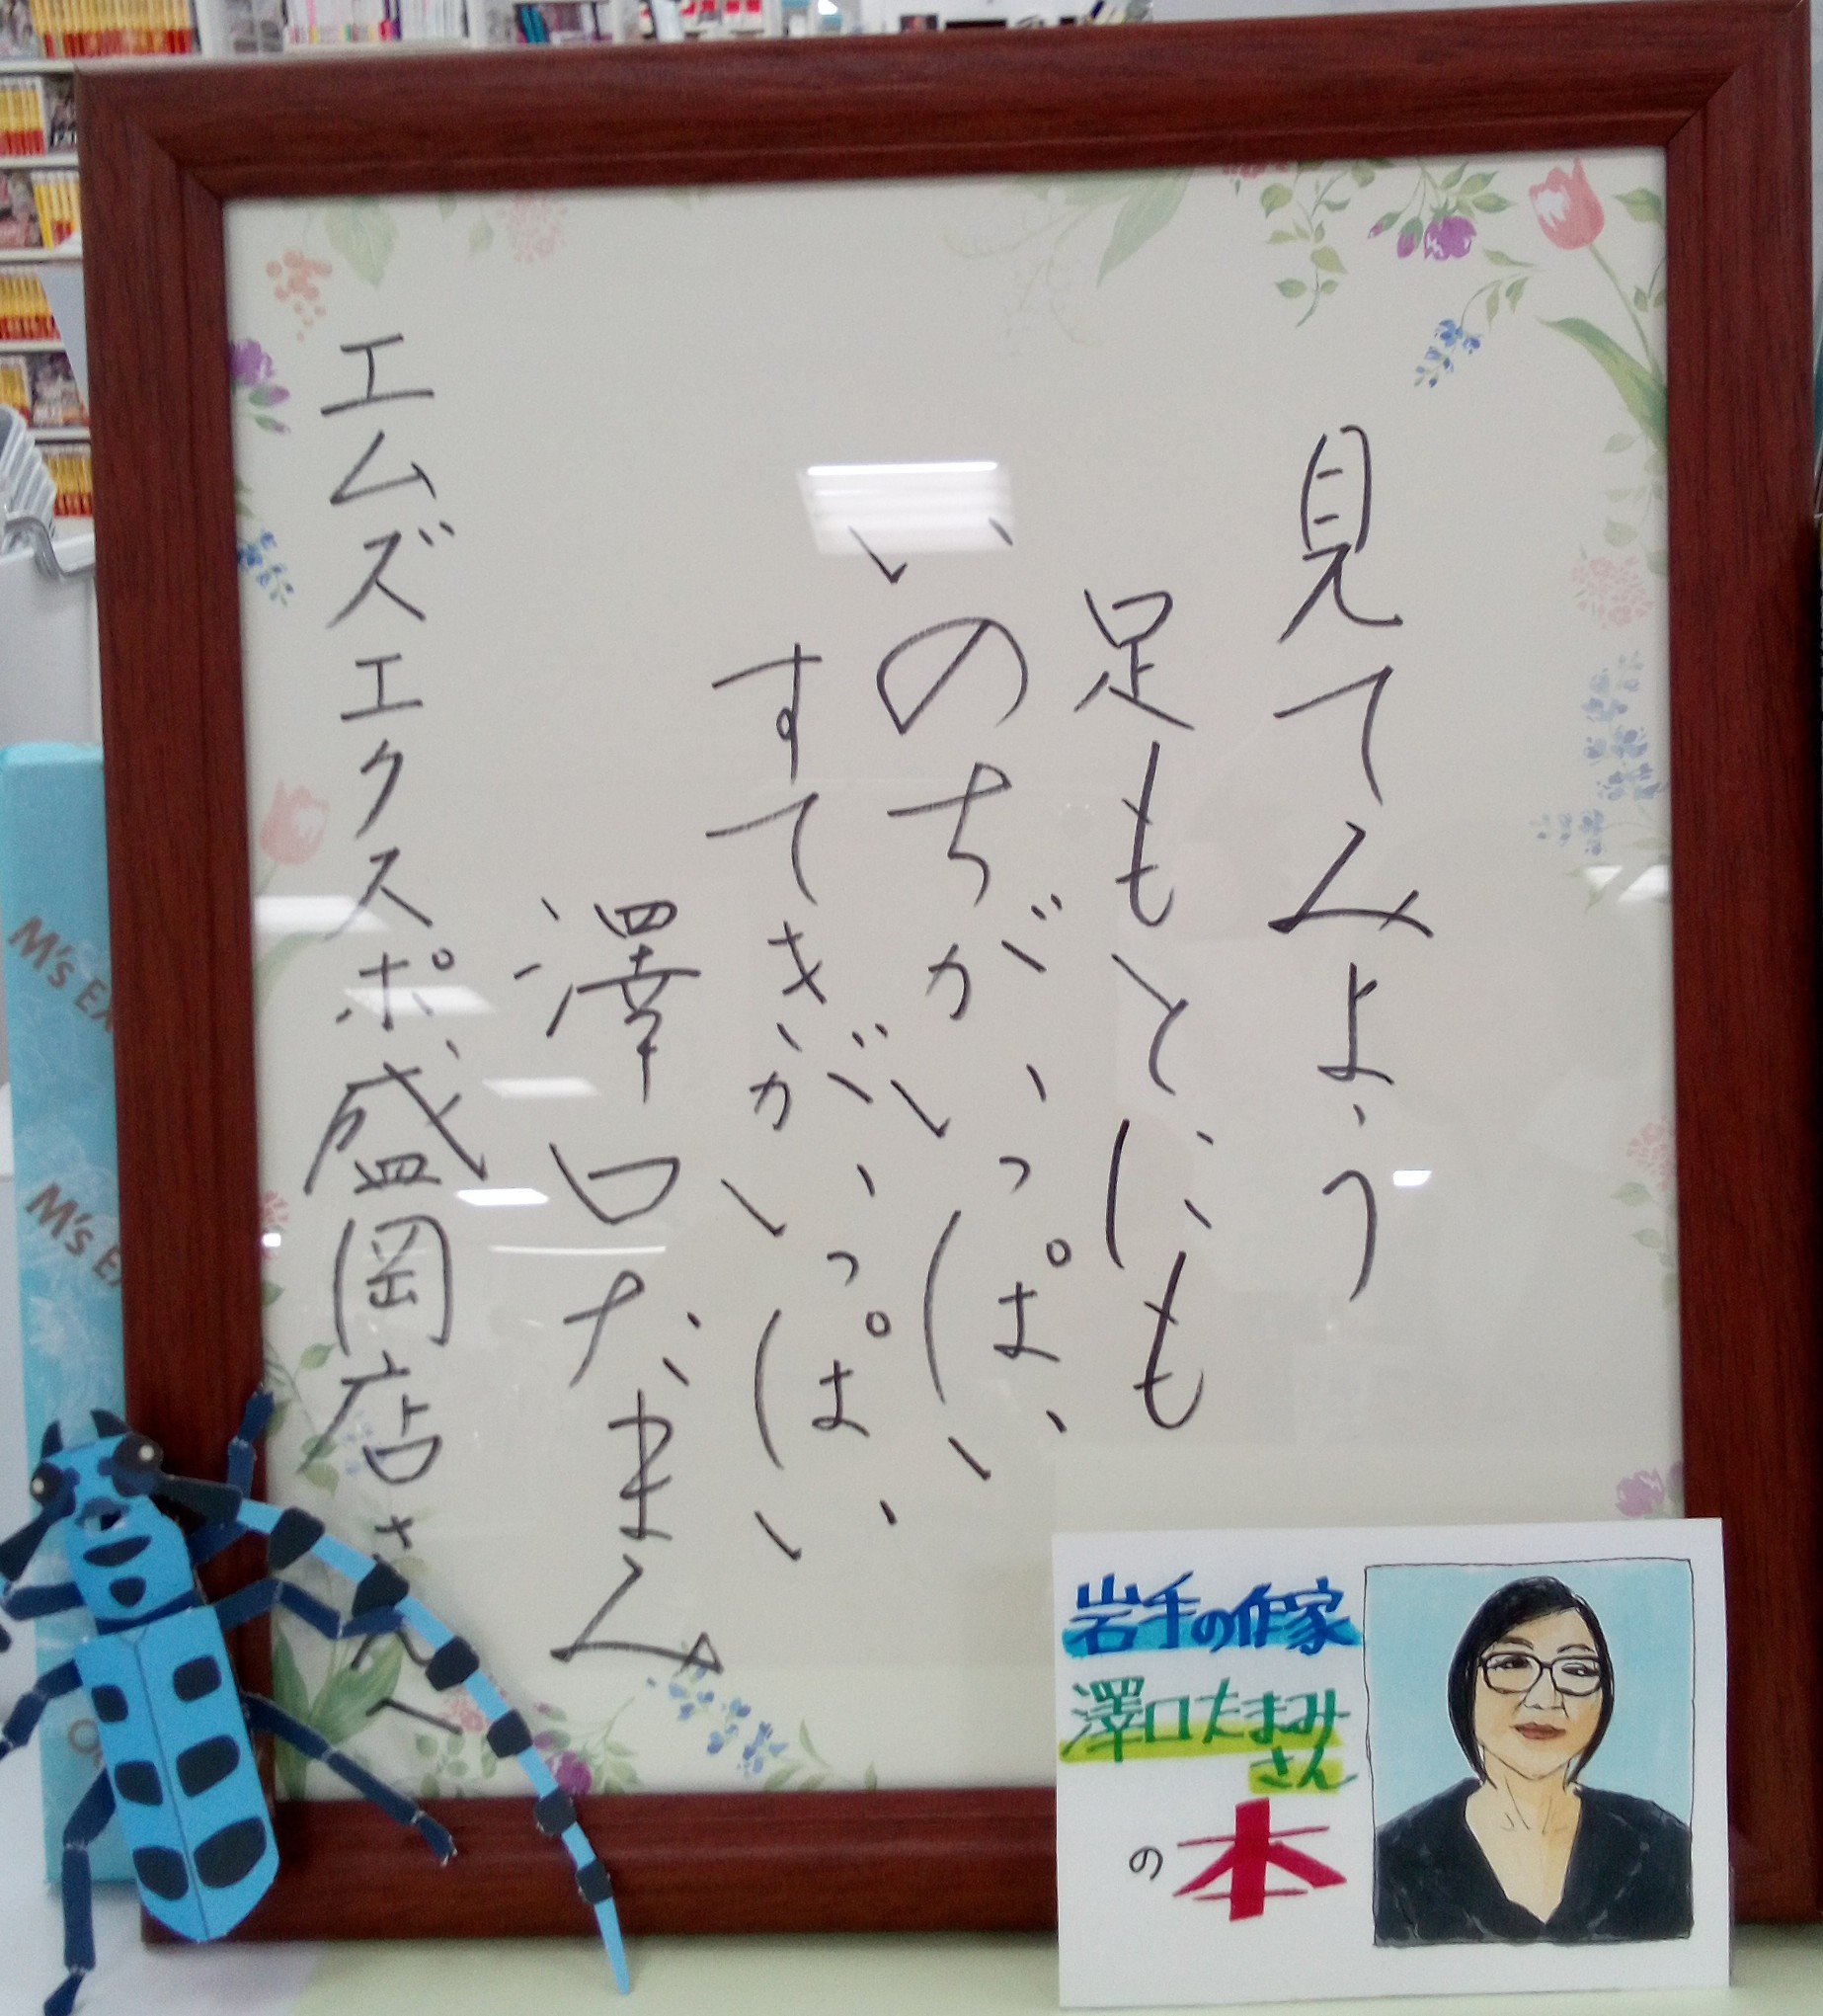 見てみよう
足もとにも
いのちがいっぱい
すてきがいっぱい
澤口たまみ
エムズエクスポ盛岡店さんへ
岩手の作家
澤口たまみ
さん
の本
M's EX
M's E